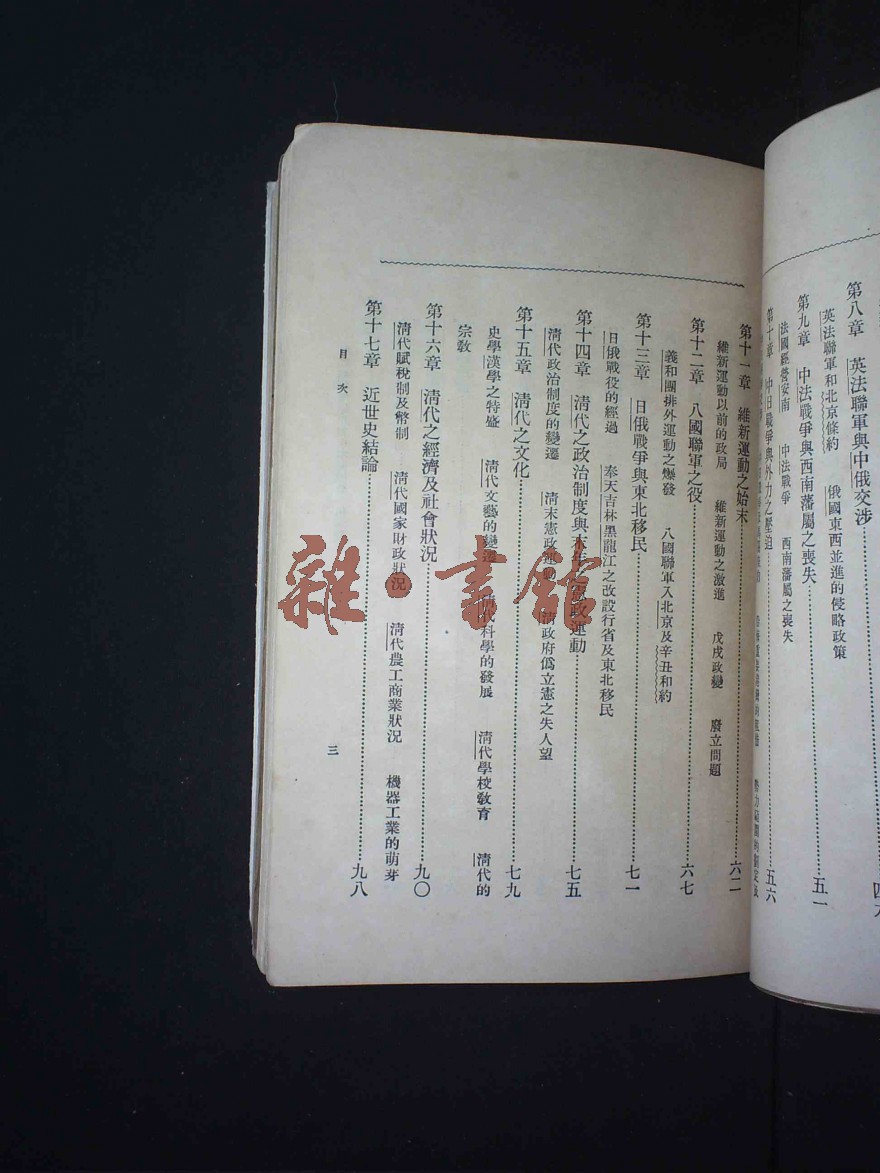 第八章　英法聯軍與中俄交涉
英法聯軍和北京條約　俄國東西並進的侵略政策
第九章　中法戰爭與西南藩屬之喪失……五一
法國經營安南　中法戰爭　西南藩屬之喪失
第十章　中日戰爭與外力之壓迫……五六
第十一章　維新運動之始末……六二
維新運動以前的政局　維新運動之激進　戊戌政變　廢立問題
第十二章　八國聯軍之役……六七
義和團排外運動之爆發　八國聯軍入北京及辛丑和約
第十三章　日俄戰爭與東北移民……七一
日俄戰役的經過　奉天吉林黑龍江之改設行省及東北移民
第十四章　清代之政治制度與末年之憲政運動……七五
清代政治制度的變遷　清末憲政運動　清政府僞立憲之失人望
第十五章　清代之文化……七九
史學漢學之特盛　清代文藝的變遷　清代科學的發展　清代學校教育　清代的
宗教
第十六章　清代之經濟及社會狀況……九〇
清代賦稅制及幣制　清代國家財政狀況　清代農工商業狀況　機器工業的萌芽
第十七章　近世史結論……九八
目次
三
雜·書館